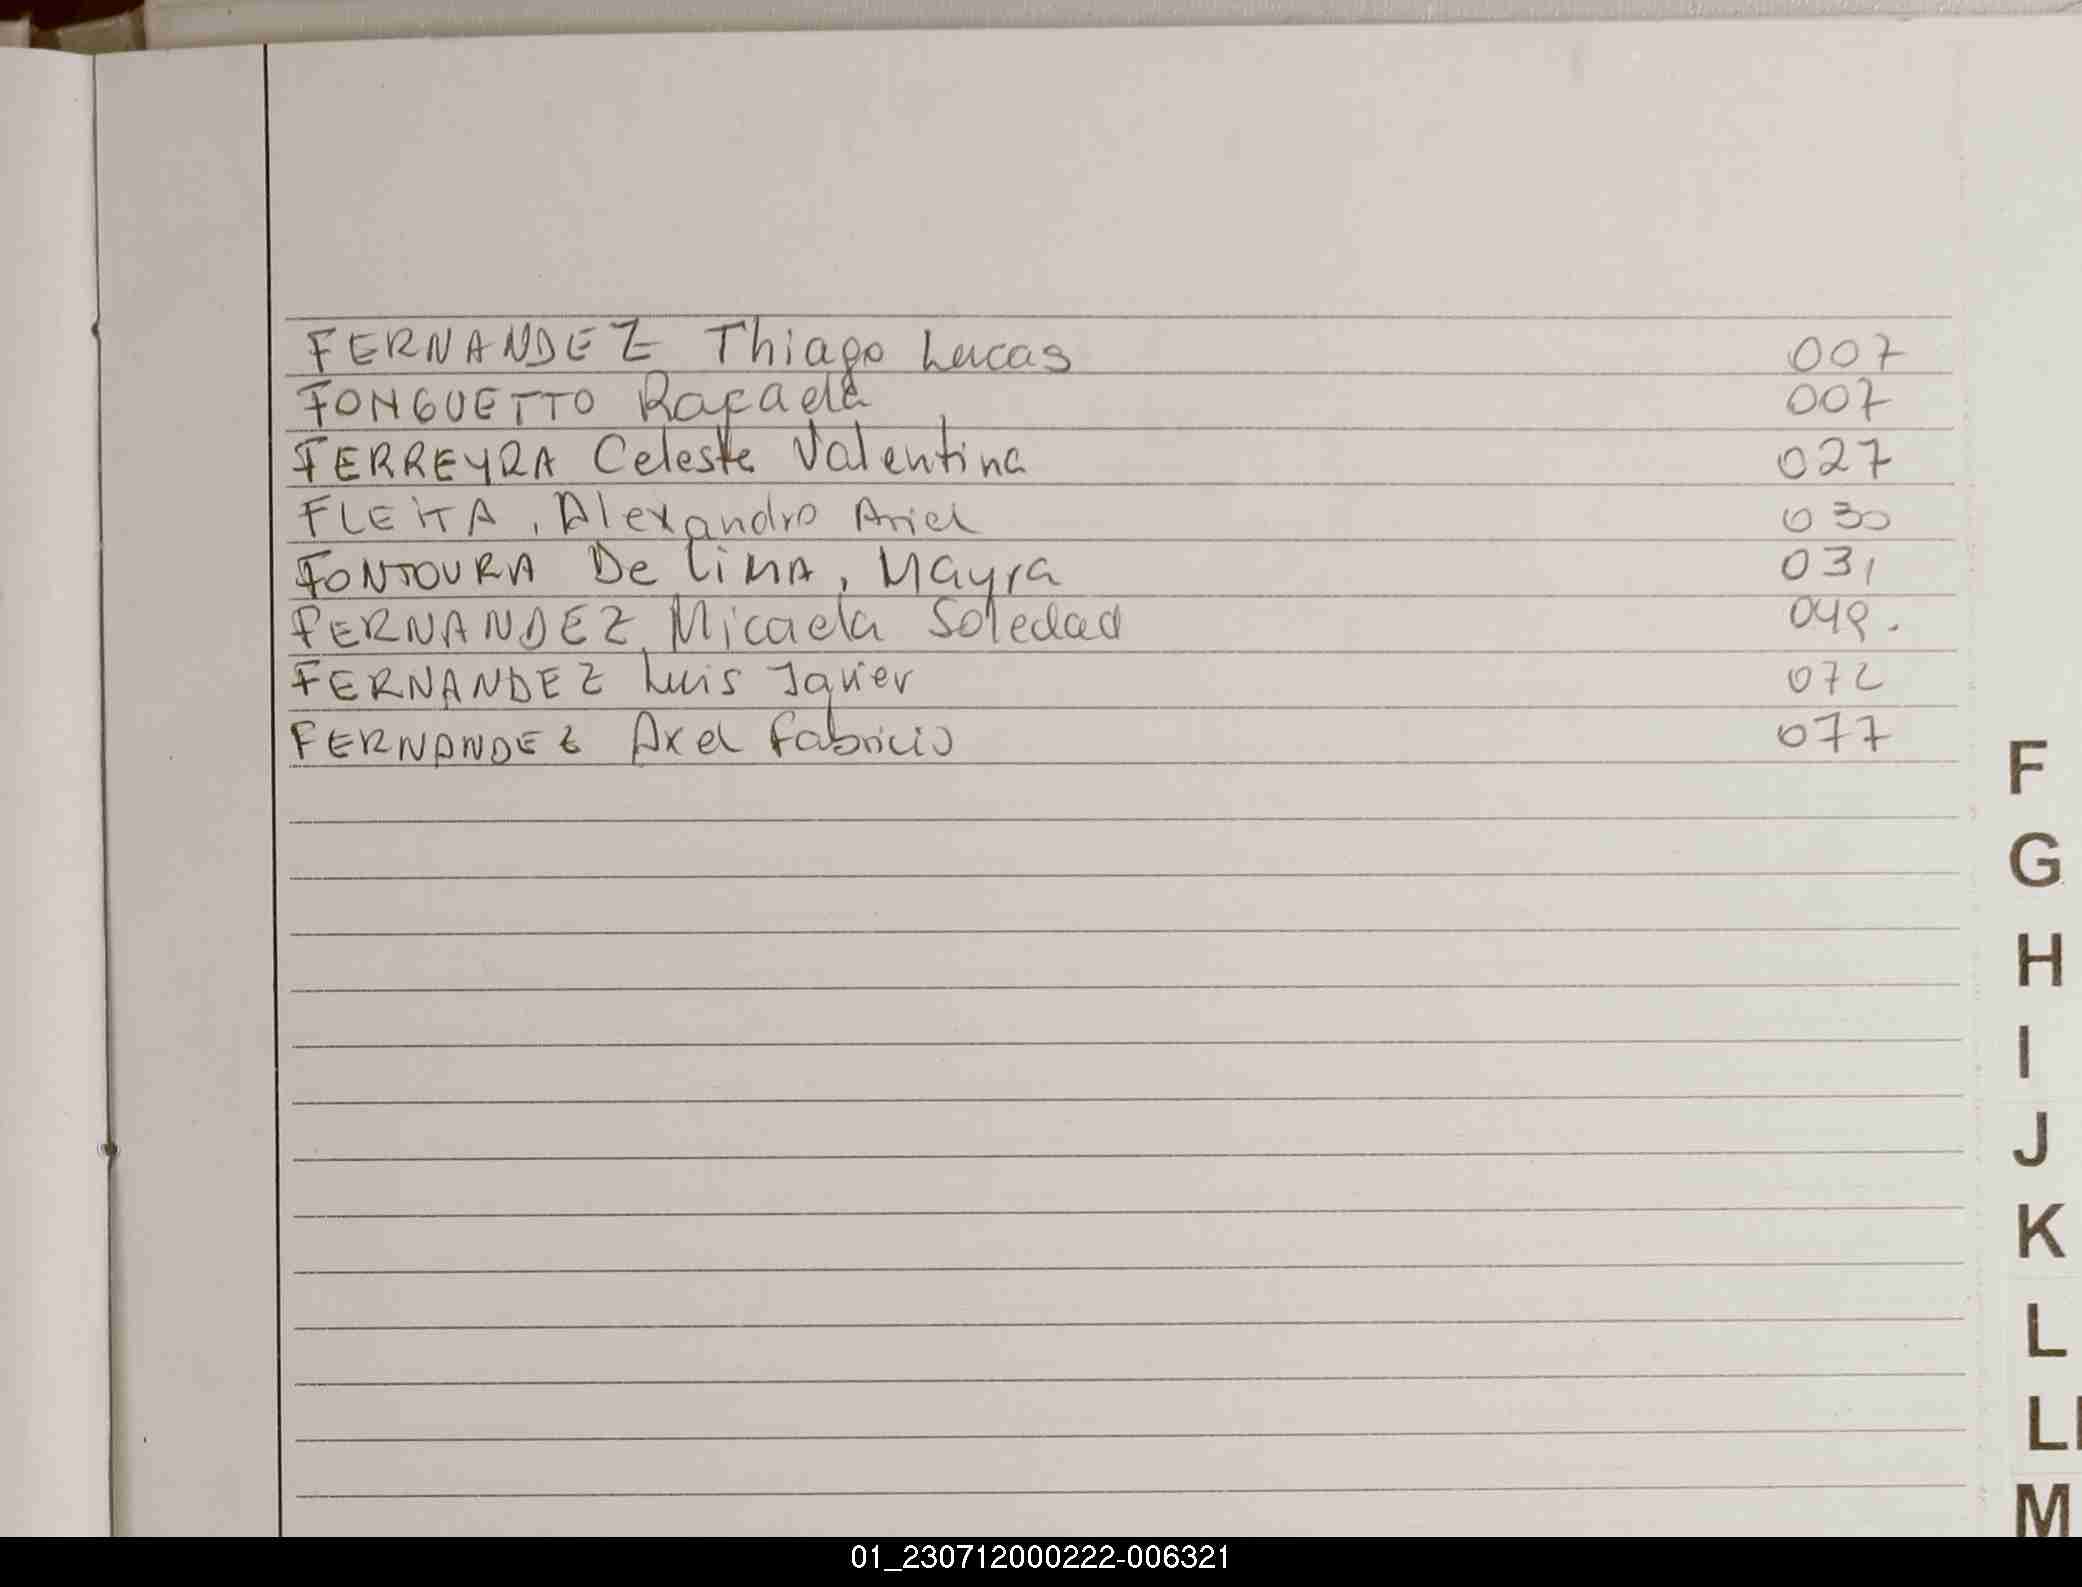 FERNANDEZ Thiago Lucas 007
FONGUETTO Rafaela 007
FERREYRA Celeste Valentina 027
FLEITA, Alexandro Ariel 030
FONTOURA De Lima, Mayra 031
FERNANDEZ, Micaela Soledad 049.
FERNANDEZ Luis Javier 072
FERNANDEZ Axel Fabricio 077
F
G
H
I
J
K
L
LI
M
01_230712000222-006321